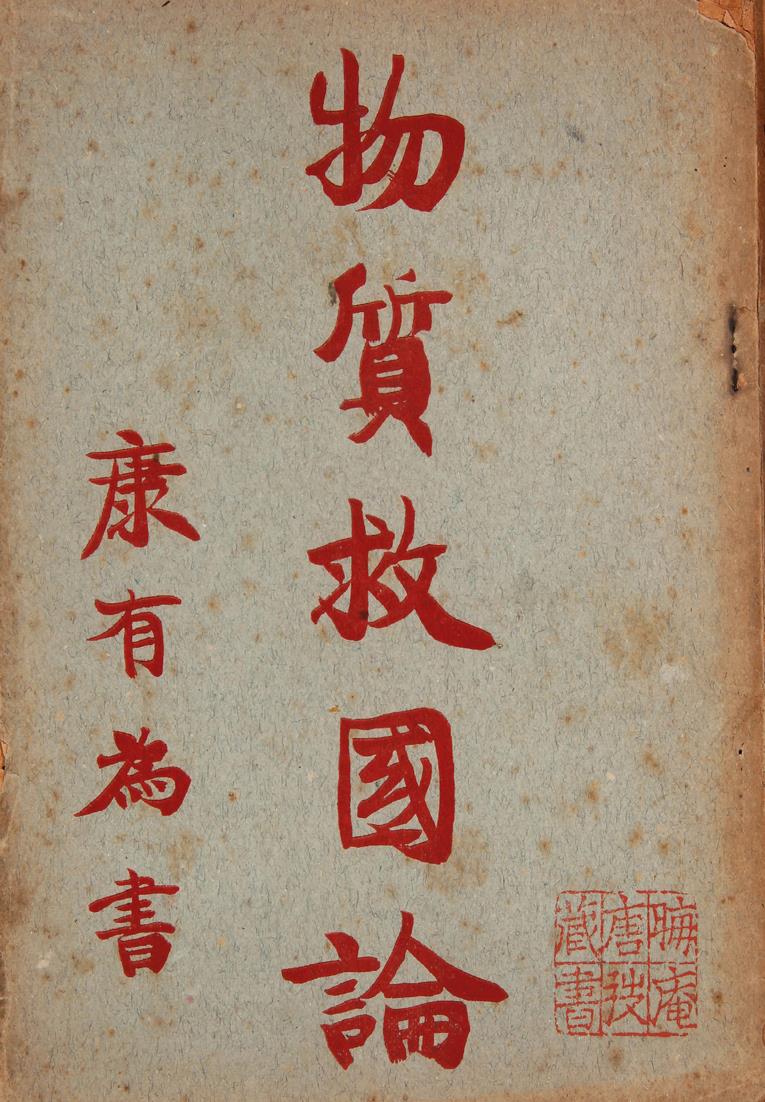 物質救國論
康有為書
晦庵
唐弢
藏書